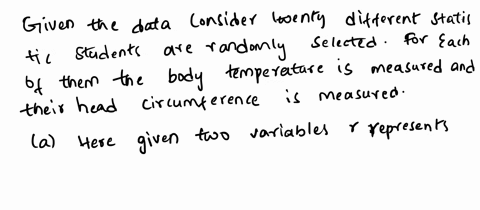 Given the data Consider twenty different statis
tic students are randomly selected. For Each
of them the body temperature is measured and
their head circumference is measured.
(a) Here given two variables r represents